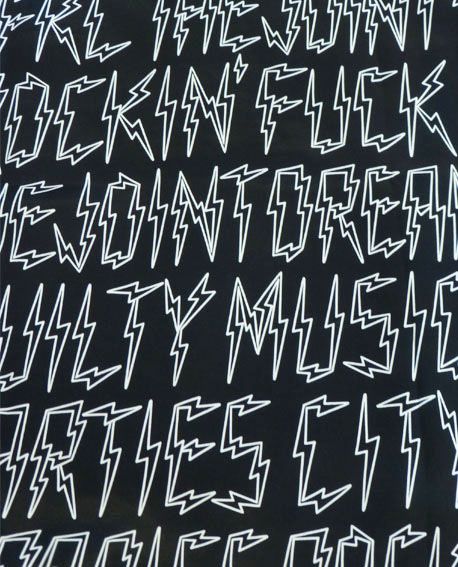 THE JOINT
ROCKIN' FUCK
HE JOINT DREAM
UILTY MUSIC
ARTIES CITY